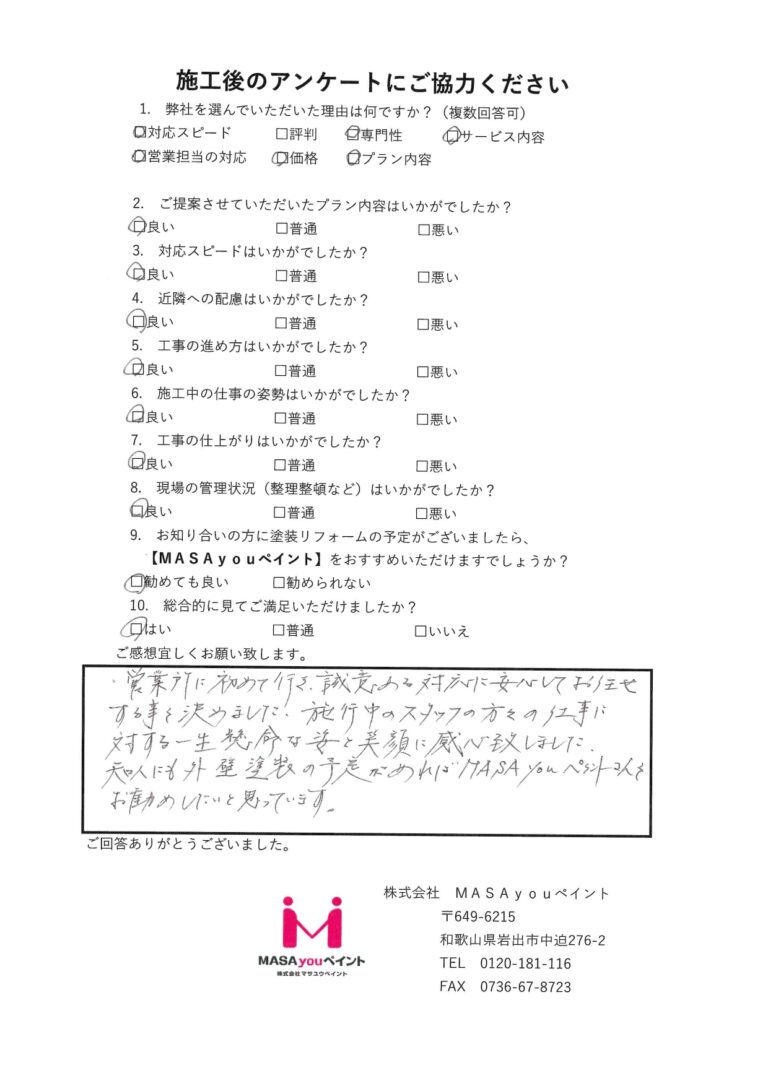 施工後のアンケートにご協力ください
1. 弊社を選んでいただいた理由は何ですか？（複数回答可）
□対応スピード □評判 □専門性 □サービス内容
□営業担当の対応 □価格 □プラン内容
2. ご提案させていただいたプラン内容はいかがでしたか？
□良い □普通 □悪い
3. 対応スピードはいかがでしたか？
□良い □普通 □悪い
4. 近隣への配慮はいかがでしたか？
□良い □普通 □悪い
5. 工事の進め方はいかがでしたか？
□良い □普通 □悪い
6. 施工中の仕事の姿勢はいかがでしたか？
□良い □普通 □悪い
7. 工事の仕上がりはいかがでしたか？
□良い □普通 □悪い
8. 現場の管理状況（整理整頓など）はいかがでしたか？
□良い □普通 □悪い
9. お知り合いの方に塗装リフォームの予定がございましたら、
【ＭＡＳＡｙｏｕペイント】をおすすめいただけますでしょうか？
□勧めても良い □勧められない
10. 総合的に見てご満足いただけましたか？
□はい □普通 □いいえ
ご感想宜しくお願い致します。
・営業所に初めて行き、誠意ある対応に安心してお任せ
する事を決めました。施行中のスタッフの方々の仕事に
対する一生懸命な姿と笑顔に感心致しました。
知人にも外壁塗装の予定があればMASAyouペイントさんを
お勧めしたいと思っています。
ご回答ありがとうございました。
MASAyouペイント
株式会社マサユウペイント
株式会社 ＭＡＳＡｙｏｕペイント
〒649-6215
和歌山県岩出市中迫276-2
TEL 0120-181-116
FAX 0736-67-8723